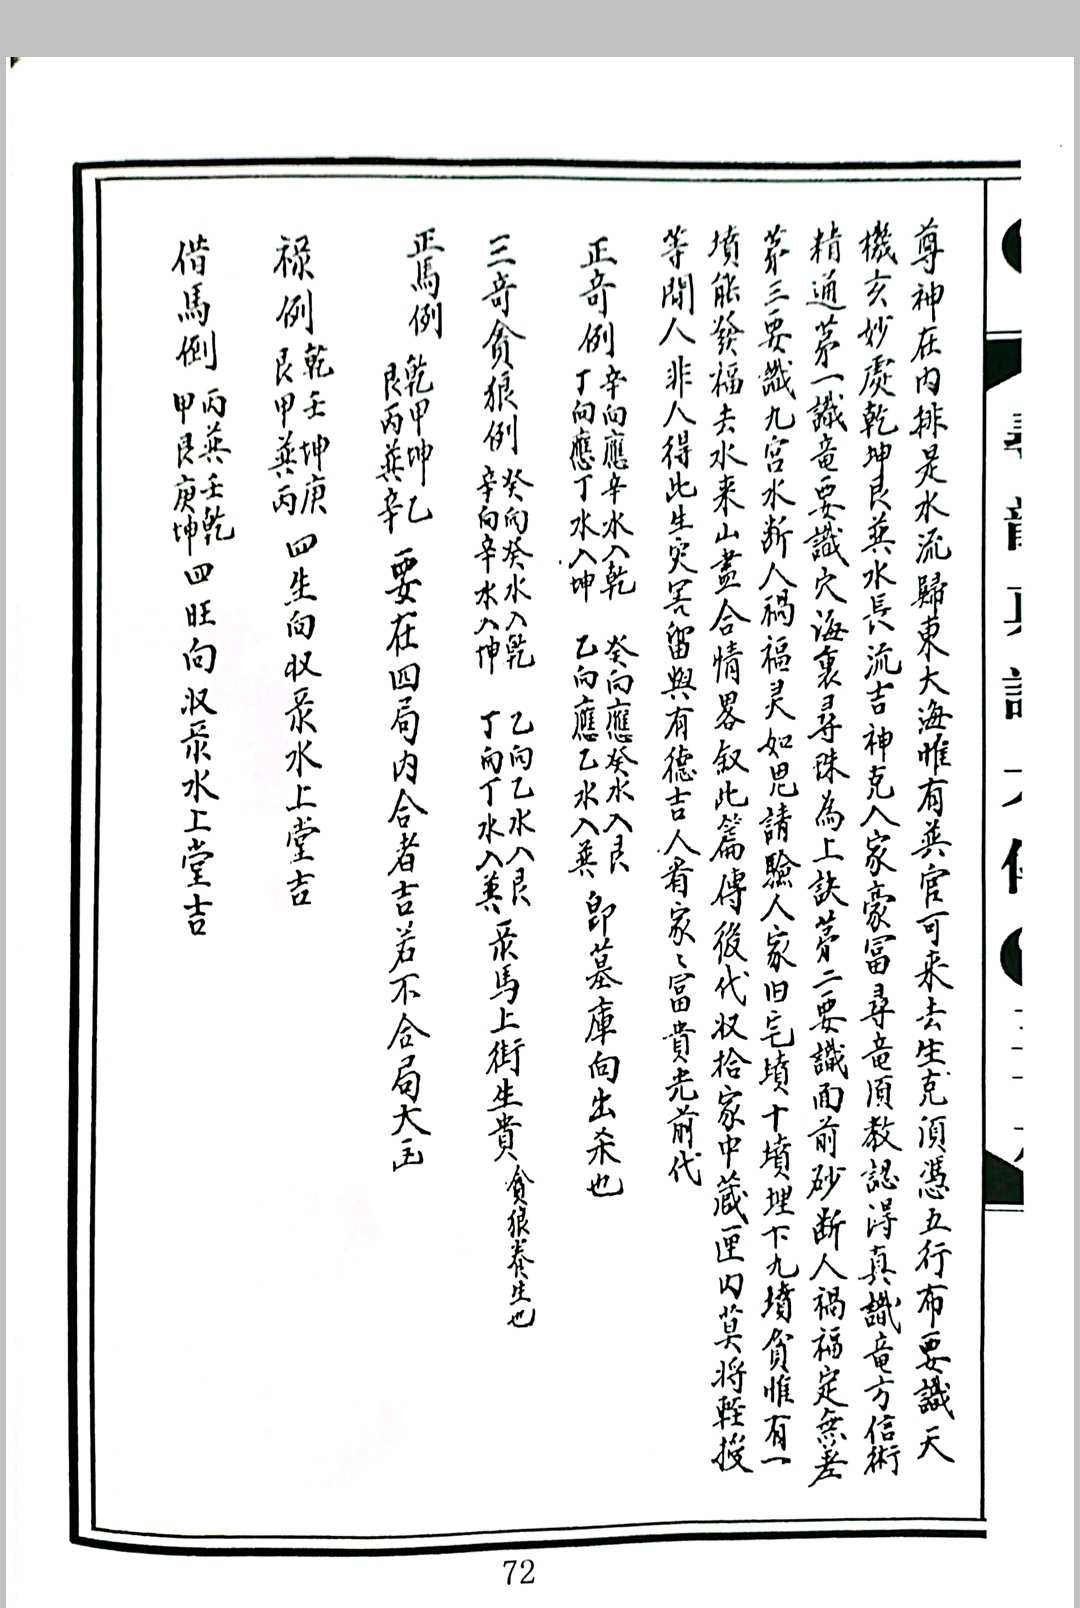 尊神在内排是水流歸東大海惟有㢲官可来去生克湏憑五行布要識天
機玄妙處乾坤艮㢲水長流吉神克入家豪冨尋竜湏教認得真識竜方信術
精通苐一識竜要識穴海裏尋珠為上訣苐二要識面前砂断人禍福定無差
苐三要識九宫水断人禍福灵如鬼請驗人家旧宅墳十墳埋下九墳貧惟有一
墳能發福去水来山盡合情畧叙此篇傳後代収拾家中藏匣内莫将輕授
等閒人非人得此生灾害留與有德吉人看家〻富貴光前代
正奇例 辛向應辛水入乾 丁向應丁水入坤 癸向應癸水入艮 乙向應乙水入㢲 即墓庫向出杀也
三奇貪狼例 癸向癸水入乾 辛向辛水入坤 乙向乙水入艮 丁向丁水入㢲 禄馬上街生貴 貪狼養生也
正馬例 乾甲坤乙 艮丙㢲辛 要在四局内合者吉若不合局大凶
禄例 乾壬坤庚 艮甲㢲丙 四生向収禄水上堂吉
借馬例 丙㢲壬乾 甲艮庚坤 四旺向収禄水上堂吉
72